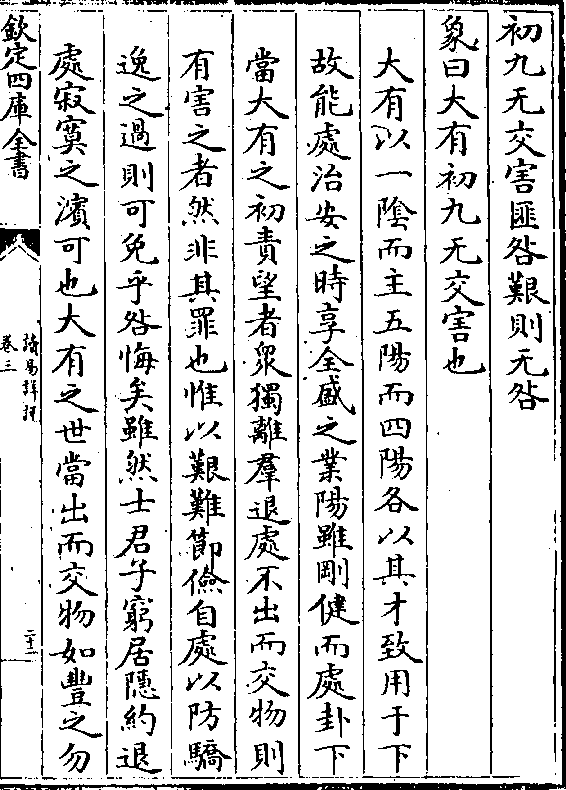 初九无交害匪咎艱則无咎
象曰大有初九无交害也
大有以一陰而主五陽而四陽各以其才致用于下
故能處治安之時享全盛之業陽雖剛健而處卦下
當大有之初責望者衆獨離羣退處不出而交物則
有害之者然非其罪也惟以艱難節儉自處以防驕
逸之過則可免乎咎悔矣雖然士君子窮居隱約退
處寂寞之濱可也大有之世當出而交物如豐之勿
欽定四庫全書
讀易詳說
卷三
二十二